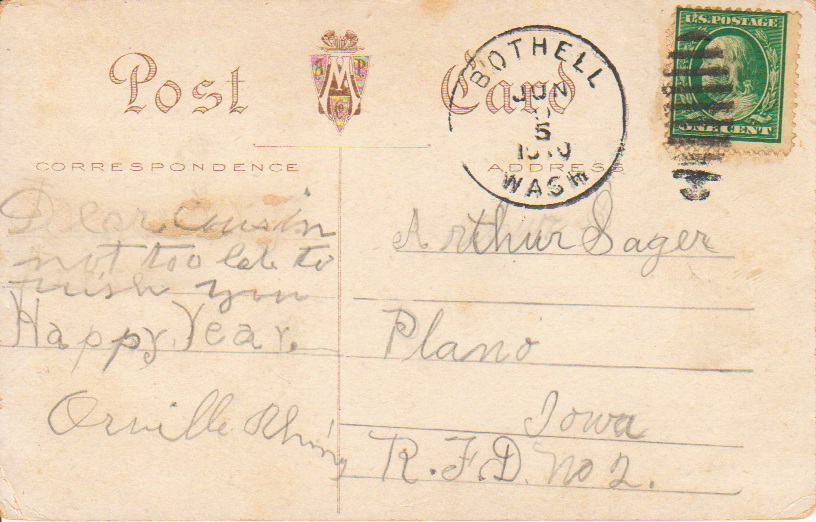 Post Card
CORRESPONDENCE
ADDRESS
U.S. POSTAGE
ONE CENT
BOTHELL
JUN
5
1910
WASH
Dear Cousin
not too late to
wish you
Happy Year.
Orville Rhing
Arthur Sager
Plano
Iowa
R.F.D. No 2.